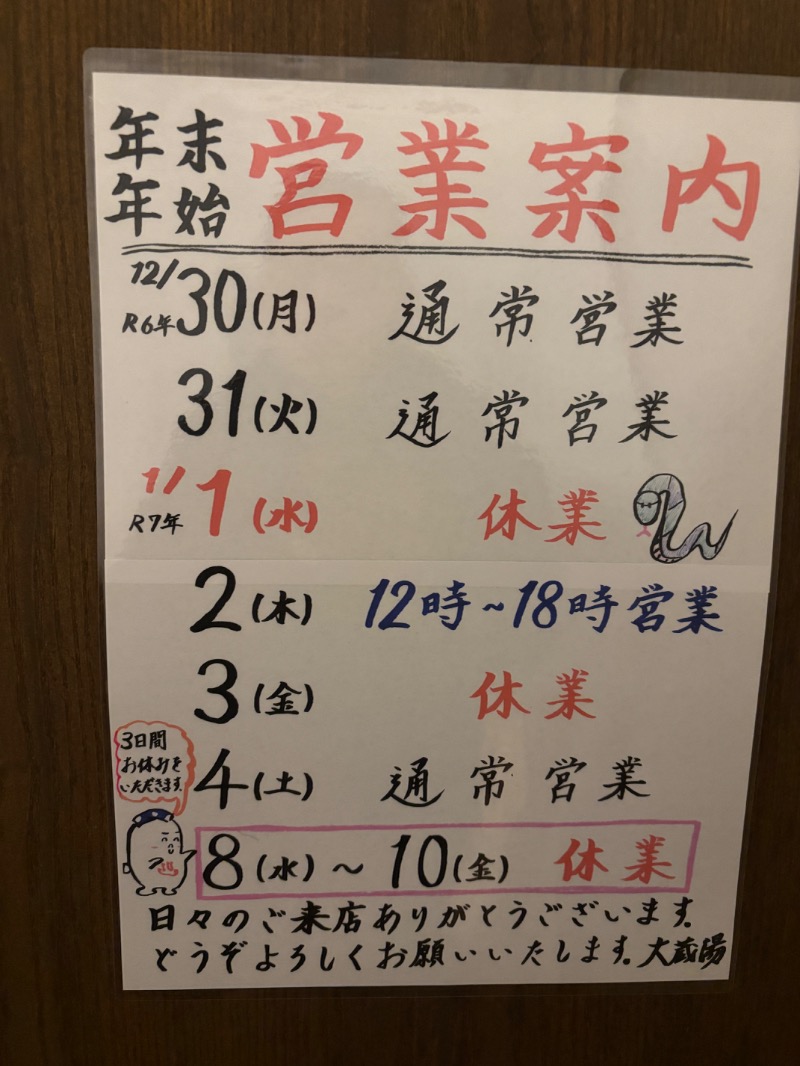 年末年始 営業案内
12/30(月) 通常営業
R6年
31(火) 通常営業
1/1(水) 休業
R7年
2(木) 12時~18時営業
3(金) 休業
3日間
お休みを
いただきます。
4(土) 通常営業
8(水)~10(金) 休業
日々のご来店ありがとうございます。
どうぞよろしくお願いいたします。大蔵湯